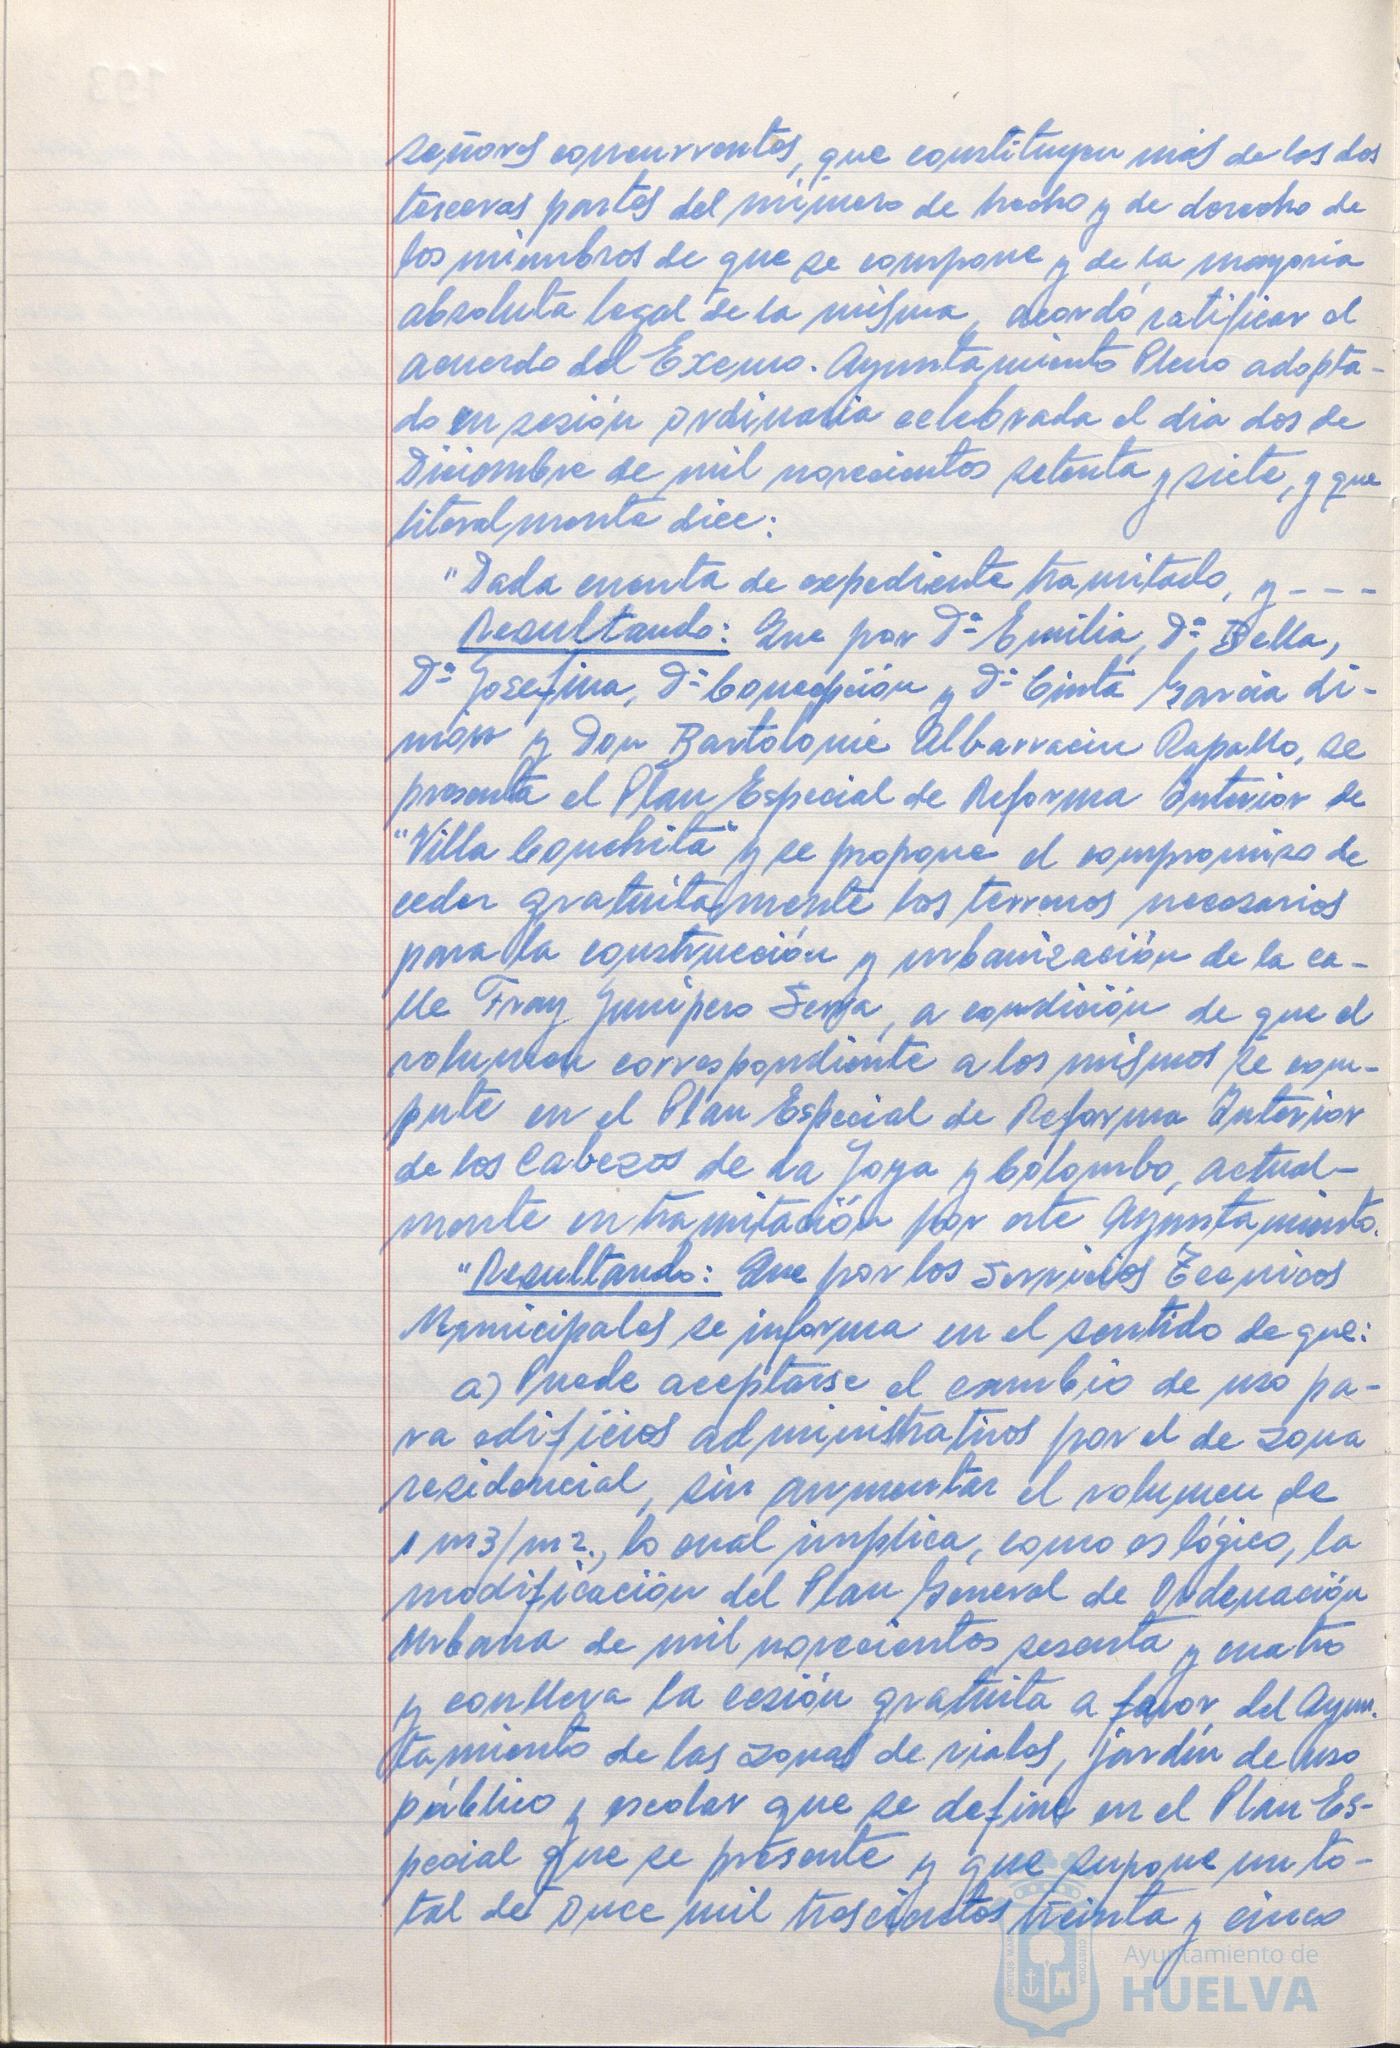 señores concurrentes, que constituyen más de las dos
terceras partes del número de hecho y de derecho de
los miembros de que se compone y de la mayoria
absoluta legal de la misma, acordó ratificar el
acuerdo del Excmo. Ayuntamiento Pleno adopta-
do en sesión ordinaria celebrada el dia dos de
Diciembre de mil novecientos setenta y siete, y que
literalmente dice:
"Dada cuenta de expediente tramitado, y - - -
Resultando: Que por Dª Emilia, Dª Bella,
Dª Josefina, Dª Concepción y Dª Cinta Garcia Di-
món y Don Bartolomé Albarracin Rapallo, se
presenta el Plan Especial de Reforma Interior de
"Villa Conchita" y se propone el compromiso de
ceder gratuitamente los terrenos necesarios
para la construcción y urbanización de la ca-
lle Fray Junipero Serra, a condición de que el
volumen correspondiente a los mismos se com-
pute en el Plan Especial de Reforma Interior
de los Cabezos de La Joya y Colombo, actual-
mente en tramitación por este Ayuntamiento.
"Resultando: Que por los Servicios Tecnicos
Municipales se informa en el sentido de que:
a) Puede aceptarse el cambio de uso pa-
ra edificios administrativos por el de zona
residencial, sin aumentar el volumen de
1 m3/m2., lo cual implica, como es lógico, la
modificación del Plan General de Ordenación
Urbana de mil novecientos sesenta y cuatro
y conlleva la cesión gratuita a favor del Ayun-
tamiento de las zonas de viales, jardín de uso
público y escolar que se define en el Plan Es-
pecial que se presente y que supone un to-
tal de once mil trescientos treinta y cinco
Ayuntamiento de
HUELVA
PORTUS MARIS
CUSTODIA